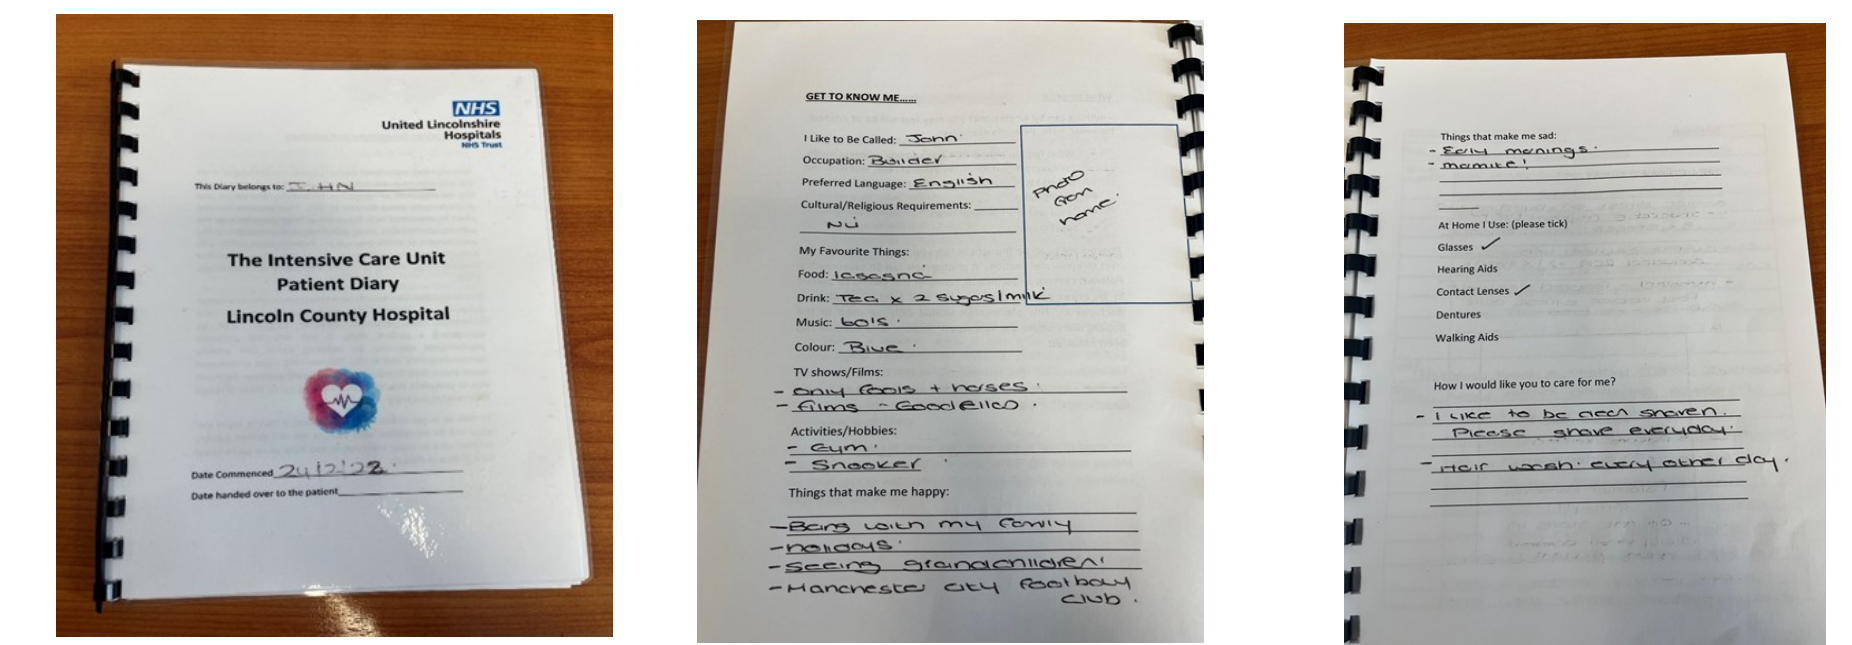 NHS
United Lincolnshire
Hospitals
NHS Trust
This Diary belongs to: JOHN
The Intensive Care Unit
Patient Diary
Lincoln County Hospital
Date Commenced 24/2/22
Date handed over to the patient
GET TO KNOW ME......
I Like to Be Called: John
Occupation: Builder
Preferred Language: English
Cultural/Religious Requirements:
Nil
Photo
from
home.
My Favourite Things:
Food: lasagna
Drink: Tea x 2 sugars/milk
Music: 60's.
Colour: Blue.
TV shows/Films:
- only fools + horses.
- films - Goodfellas.
Activities/Hobbies:
- Gym.
- Snooker
Things that make me happy:
- Being with my family
- holidays.
- seeing grandchildren.
- Manchester city football
club.
Things that make me sad:
- Early mornings.
- marmite!
At Home I Use: (please tick)
Glasses ✓
Hearing Aids
Contact Lenses ✓
Dentures
Walking Aids
How I would like you to care for me?
- I like to be clean shaven.
Please shave everyday.
- Hair wash. every other day.